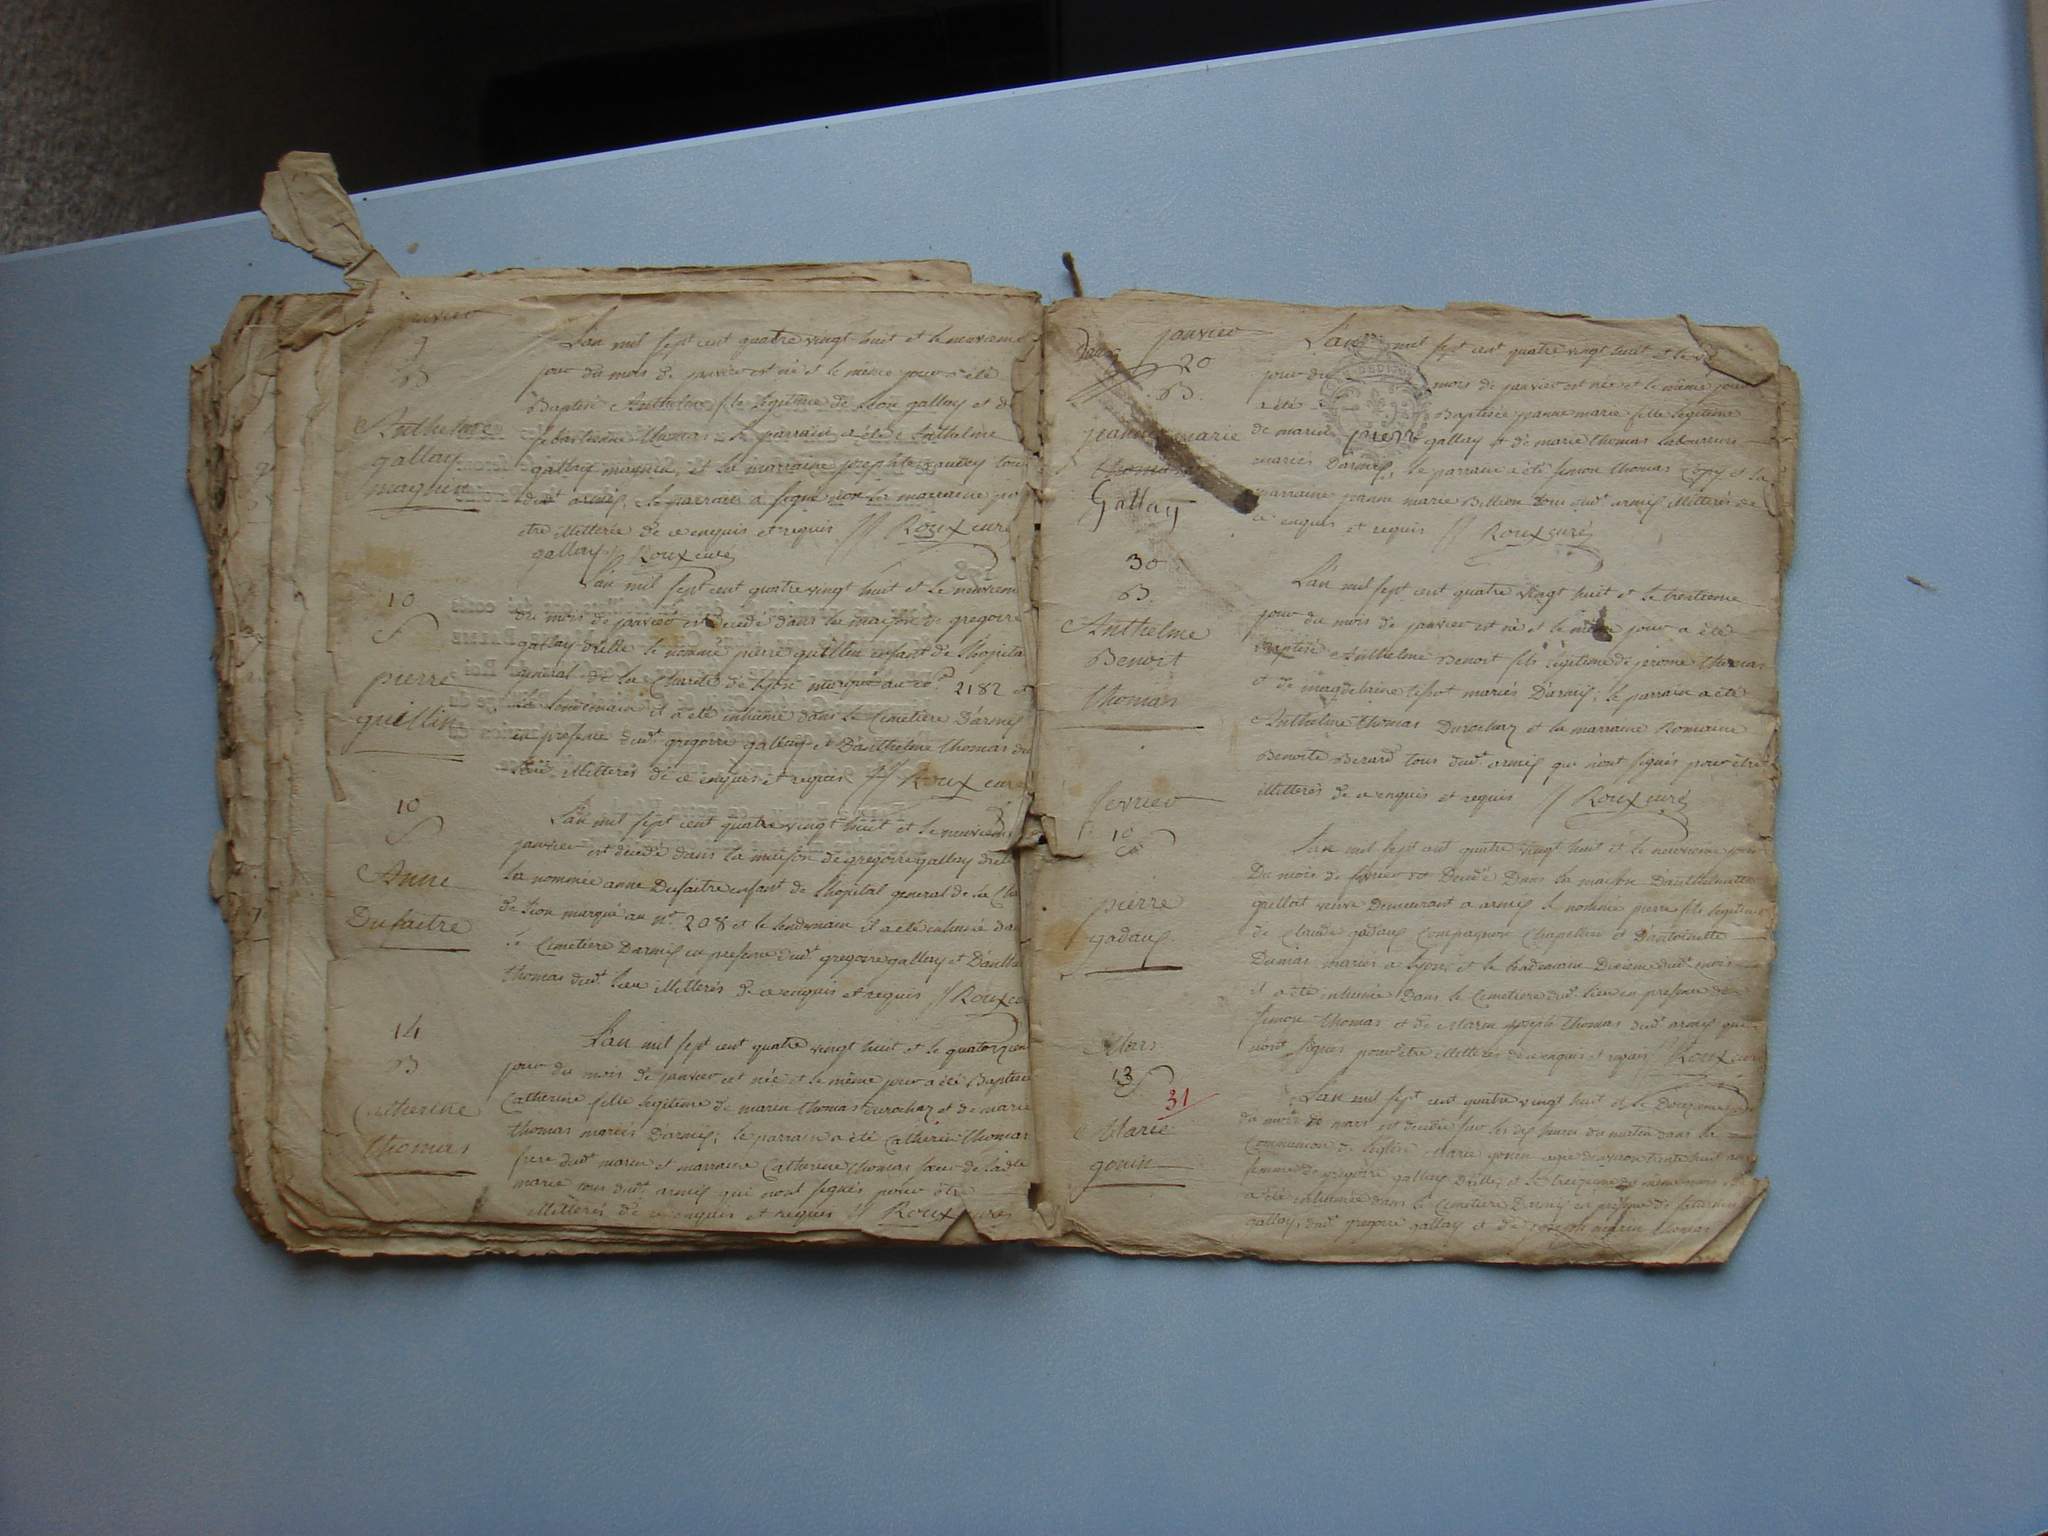 janvier
9
B
Anthelme
gallay
magnin
L'an mil sept cent quatre vingt huit et le neuvieme
jour du mois de janvier est né et le même jour a été
Baptisé Anthelme fils legitime de Leon gallay et de
sebastienne thomas le parrain a été Anthelme
gallay magnin, et la marraine josephte
dud.t armis, le parrain a signé non la marraine po
etre illitterée de ce enquis et requis // Roux curé
gallay // Roux curé
10
S
pierre
guillin
L'an mil sept cent quatre vingt huit et le neuvieme
du mois de janvier est decedé dans la maison de gregoire
gallay drille le nommé pierre guillin enfant de l'hopital
general de la Charité de lyon marqué au n.o 2182 et
le lendemain il a été inhumé dans le Cemetiere D'armis
en presence dud.t gregoire gallay et D'anthelme thomas du
lieu illitterés de ce enquis et requis // Roux curé
10
S
Anne
Dufaitre
L'an mil sept cent quatre vingt huit et le neuvieme
janvier est decedé dans la maison de gregoire gallay drille
la nommée anne Dufaitre enfant de l'hopital general de la Cha
de lion marqué au n.o 208 et le lendemain il a été inhumé dans
le Cemetiere Darmis en presence dud.t gregoire gallay et D'anthe
thomas dud.t lieu illitterés de ce enquis et requis // Roux cu
14
B
Catherine
thomas
L'an mil sept cent quatre vingt huit et le quatorzieme
jour du mois de janvier est née et le même jour a été Baptisée
Catherine fille legitime de marin thomas durochaz et de marie
thomas mariés D'armis; le parrain a été Catherin thomas
frere dud.t marin et marraine Catherine thomas sœur de ladte
marie tous dud.t armis qui nont signés pour être
illitterés de ce enquis et requis // Roux curé
janvier
20
B.
jeanne marie
thomas
Gallay
L'an mil sept cent quatre vingt huit et le
jour du mois de janvier est née et le même jour
a été Baptisée jeanne marie fille legitime
de marin pierre gallay et de marie thomas laboureurs
mariés D'armis, le parrain a été simon thomas et la
marraine jeanne marie Billion tous dud.t armis illitterés de
ce enquis et requis // Roux curé
30
B.
Anthelme
Benoit
thomas
L'an mil sept cent quatre vingt huit et le trentieme
jour du mois de janvier est né et le même jour a été
baptisé Anthelme Benoit fils legitime de jerome thomas
et de magdelaine tissot mariés D'armis; le parrain a été
Anthelme thomas Durochaz et la marraine Romaine
Benoite Berard tous dud.t armis qui n'ont signés pour être
illitterés de ce enquis et requis // Roux curé
fevrier
10
S
pierre
gadaux
L'an mil sept cent quatre vingt huit et le neuvieme jour
Du mois de fevrier est Decedé Dans la maison D'anthelmette
grillait veuve Demeurant a armis le nommé pierre fils legitime
de Claude gadaux Compagnon Chapellier et D'antoinette
Dumas mariés a lyon, et le lendemain Dixieme dud.t mois
il a été inhumé Dans le Cemetiere dud.t lieu en presence de
simon thomas et de marin joseph thomas dud.t armis qui
n'ont signés pour être illitterés de ce enquis et requis // Roux curé
Mars
13
S
31
Marie
gouin
L'an mil sept cent quatre vingt huit et le Douzieme jour
du mois de mars est decedée sur les dix heures du matin dans la
Communion de l'eglise Marie gouin agée d'environ trente huit ans
femme de gregoire gallay Drille, et le treizieme du meme mois elle
a été inhumée dans le Cemetiere Darmis en presence de saturnin
gallay, dud.t gregoire gallay et de joseph marin thomas